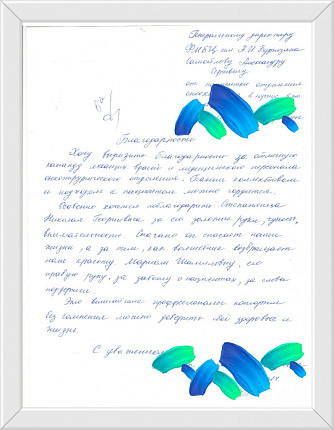 Генеральному директору
ФМБЦ им А.И Бурназяна
Самойлову Александру
Сергеевичу
от пациентки отделения
Благодарность
Хочу выразить благодарность за отличную
команду лечащих врачей и медицинского персонала
онкохирургического отделения. Таким коллективом
и подходом к пациентам можно гордится.
Особенно хочется поблагодарить Степанянца
Николая Георгиевича за его золотые руки, чуткость,
внимательность. Сначало он спасает наши
жизни, а за тем, как волшебник возвращает
нам красоту. Мариам Шамиловну, его
правую руку, за заботу о пациентах, за слова
поддержки.
Это величайшие профессионалы которым
без сомнения можно доверить своё здоровье и
жизнь.
С уважением